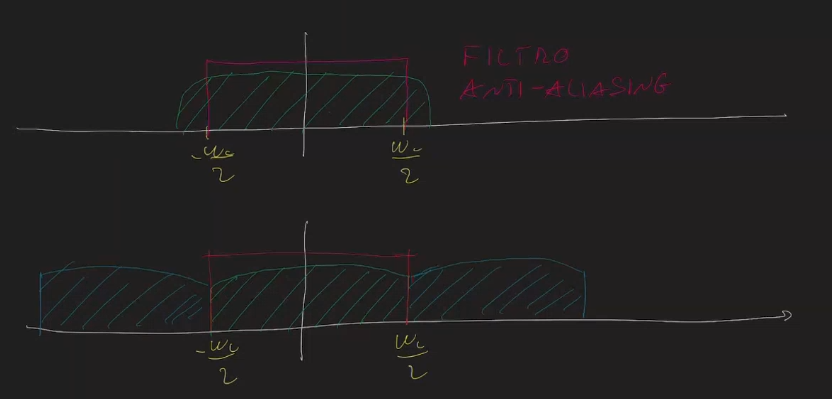 FILTRO
ANTI-ALIASING
-ωc/2
ωc/2
-ωc/2
ωc/2